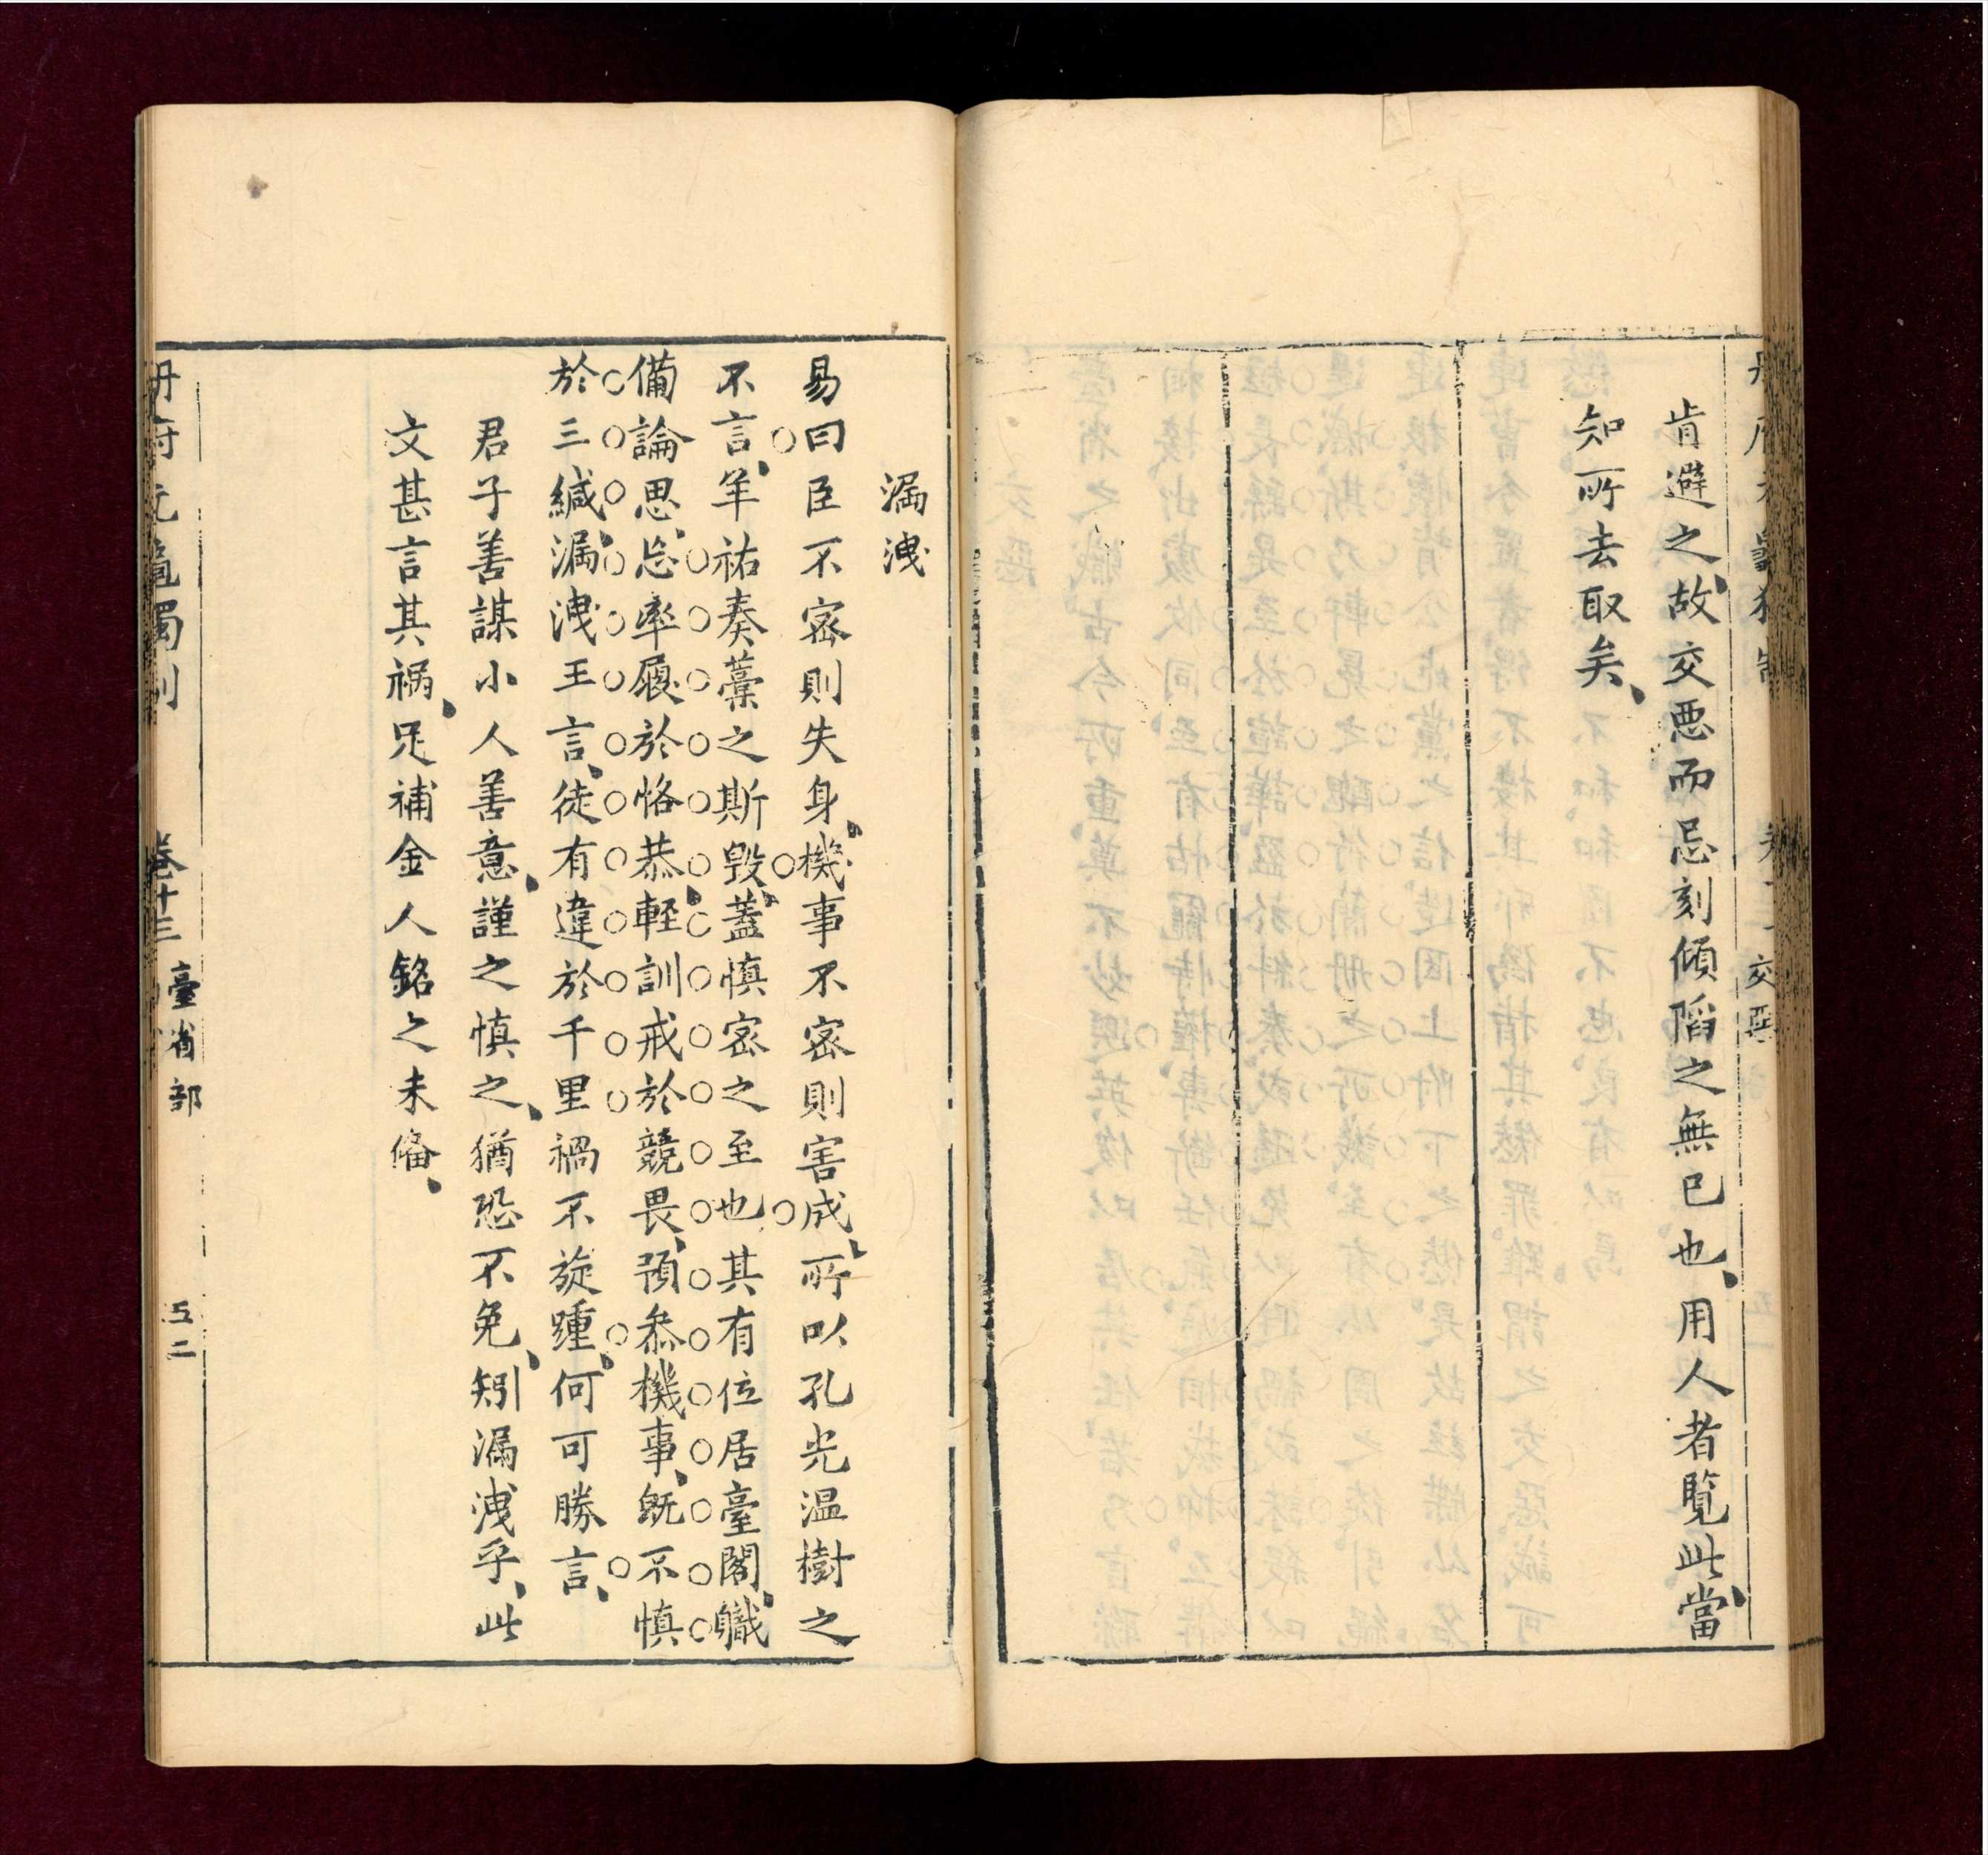 交惡
肯避之故、交悪而忌刻傾陷之無已也、用人者覧此、當
知所去取矣、
漏洩
易曰臣不密則失身、機事不密則害成、所以孔光温樹之
不言、羊祐奏藁之斯毁、蓋慎密之至也其有位居臺閣、職
備論思、忘率履於恪恭、輕訓戒於競畏、預叅機事、既不慎
於三緘、漏洩王言、徒有違於千里禍不旋踵、何可勝言、
君子善謀小人善意、謹之慎之、猶恐不免、矧漏洩乎、此
文甚言其禍、足補金人銘之未偹、
册府元龜獨制 卷十三 臺省部 五二